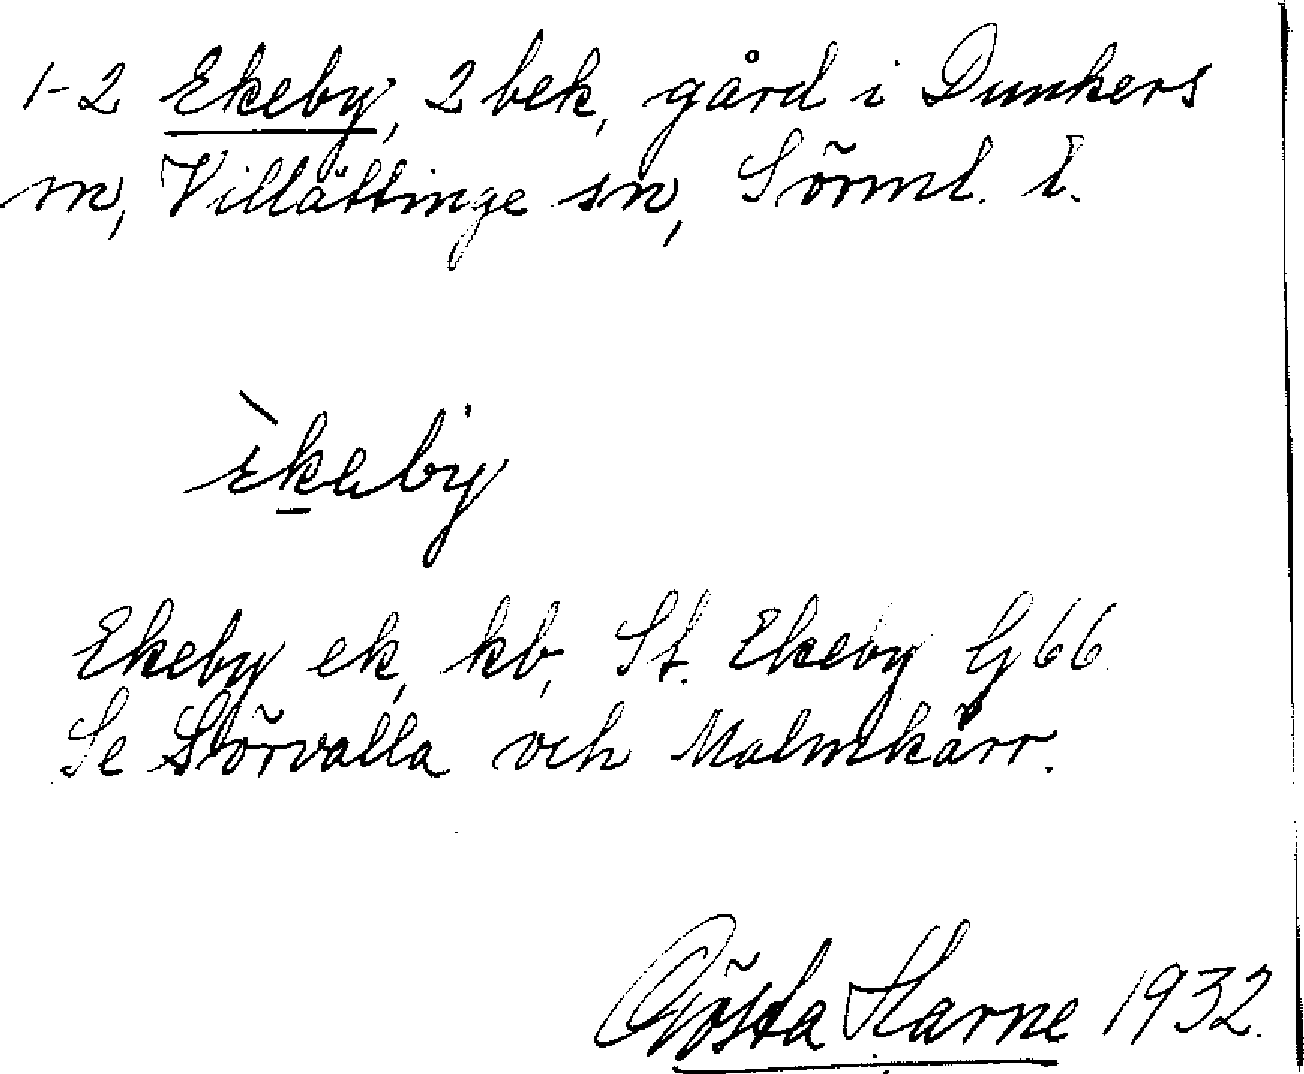 1-2 Ekeby, 2 bek, gård i Dunkers
sn, Villåttinge sn, Sörml. l.
èkeby
Ekeby ek, kb, St. Ekeby G66.
Se Lörvalla och Malmkärr.
Gösta Harne 1932.